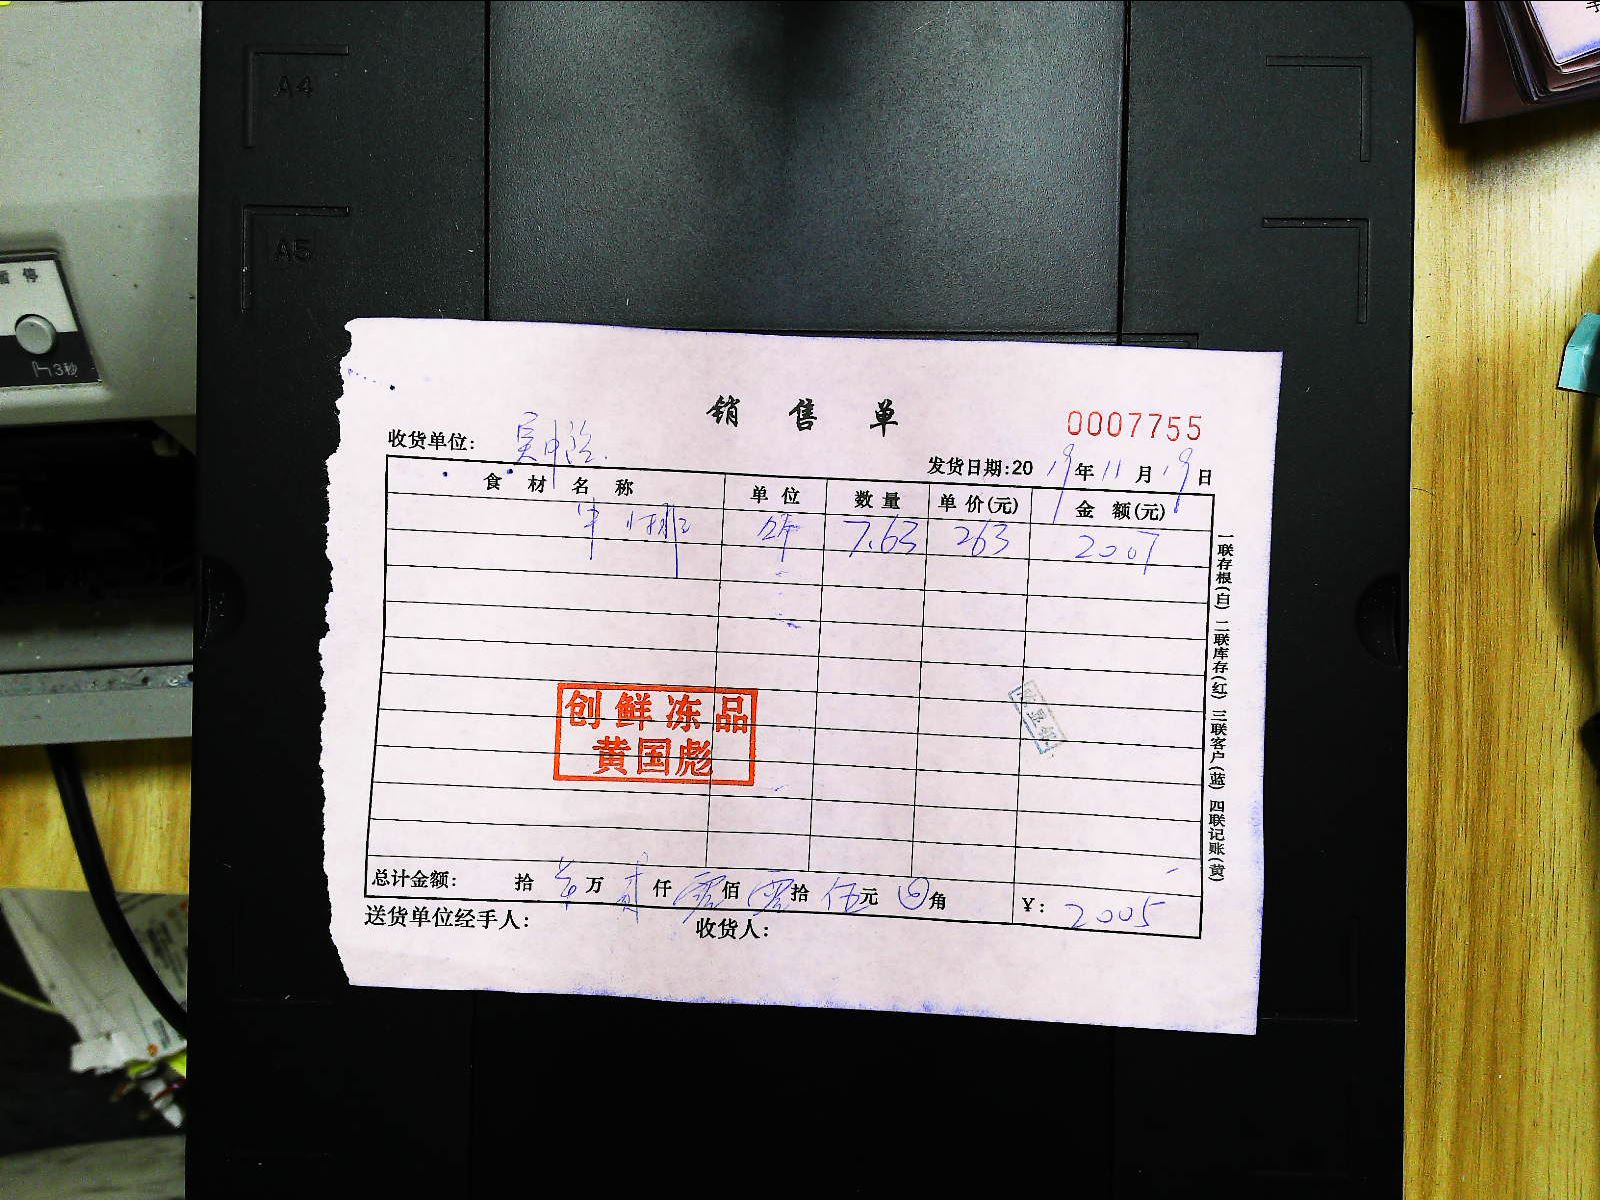 A4
A5
暂停
3秒
销售单
0007755
收货单位: 吴中
发货日期:20 19 年 11 月 19 日
食材名称 单位 数量 单价(元) 金额(元)
牛小排 件 7.63 263 2007
一联存根(白) 二联库存(红) 三联客户(蓝) 四联记账(黄)
创鲜冻品
黄国彪
总计金额: 拾 万 贰 仟 零 佰 零 拾 伍 元 角 ¥: 2005
送货单位经手人: 收货人: